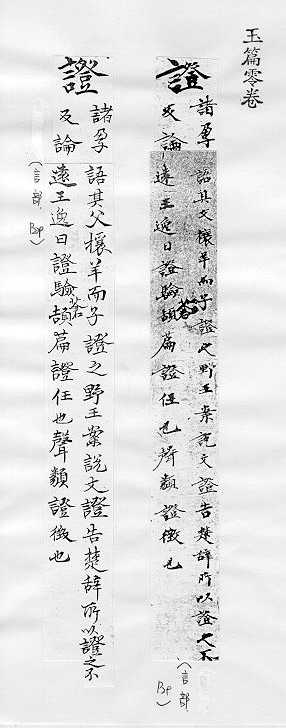 玉篇零卷
證
諸孕
反論
語其父攘羊而子證之野王案說文證告楚辭所以證之不
遠王逸曰證驗蒼頡篇證任也聲類證徵也
(言部 8p)
證
諸孕
反論
語其父攘羊而子證之野王案說文證告楚辭所以證之不
遠王逸曰證驗蒼頡篇證任也聲類證徵也
(言部 8p)